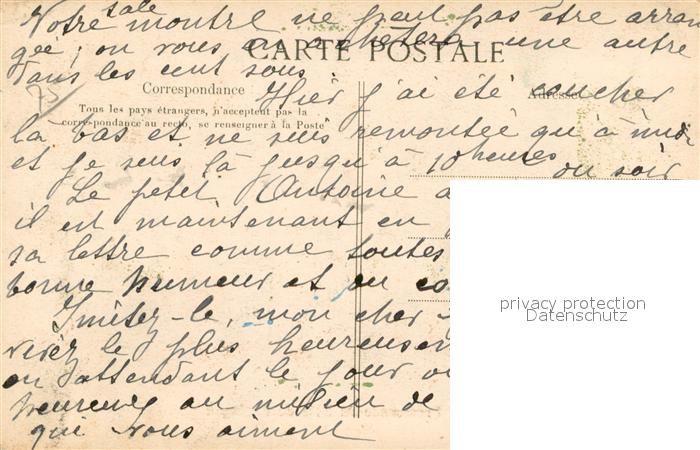 sale
Votre montre ne peut pas être arran
gée ; on vous en achetera une autre
dans les cent sous.
CARTE POSTALE
Correspondance
Adresse
Tous les pays étrangers, n'acceptent pas la
correspondance au recto, se renseigner à la Poste
Hier j'ai été coucher
là bas et ne suis remontée qu'à midi
et je suis là jusqu'à 10 heures du soir
Le petit Antoine a
il est maintenant en
sa lettre comme toutes
bonne humeur et en
Imitez-le, mon cher
le plus heureusem
en attendant le jour où
heureux au milieu de
qui vous aiment
privacy protection
Datenschutz